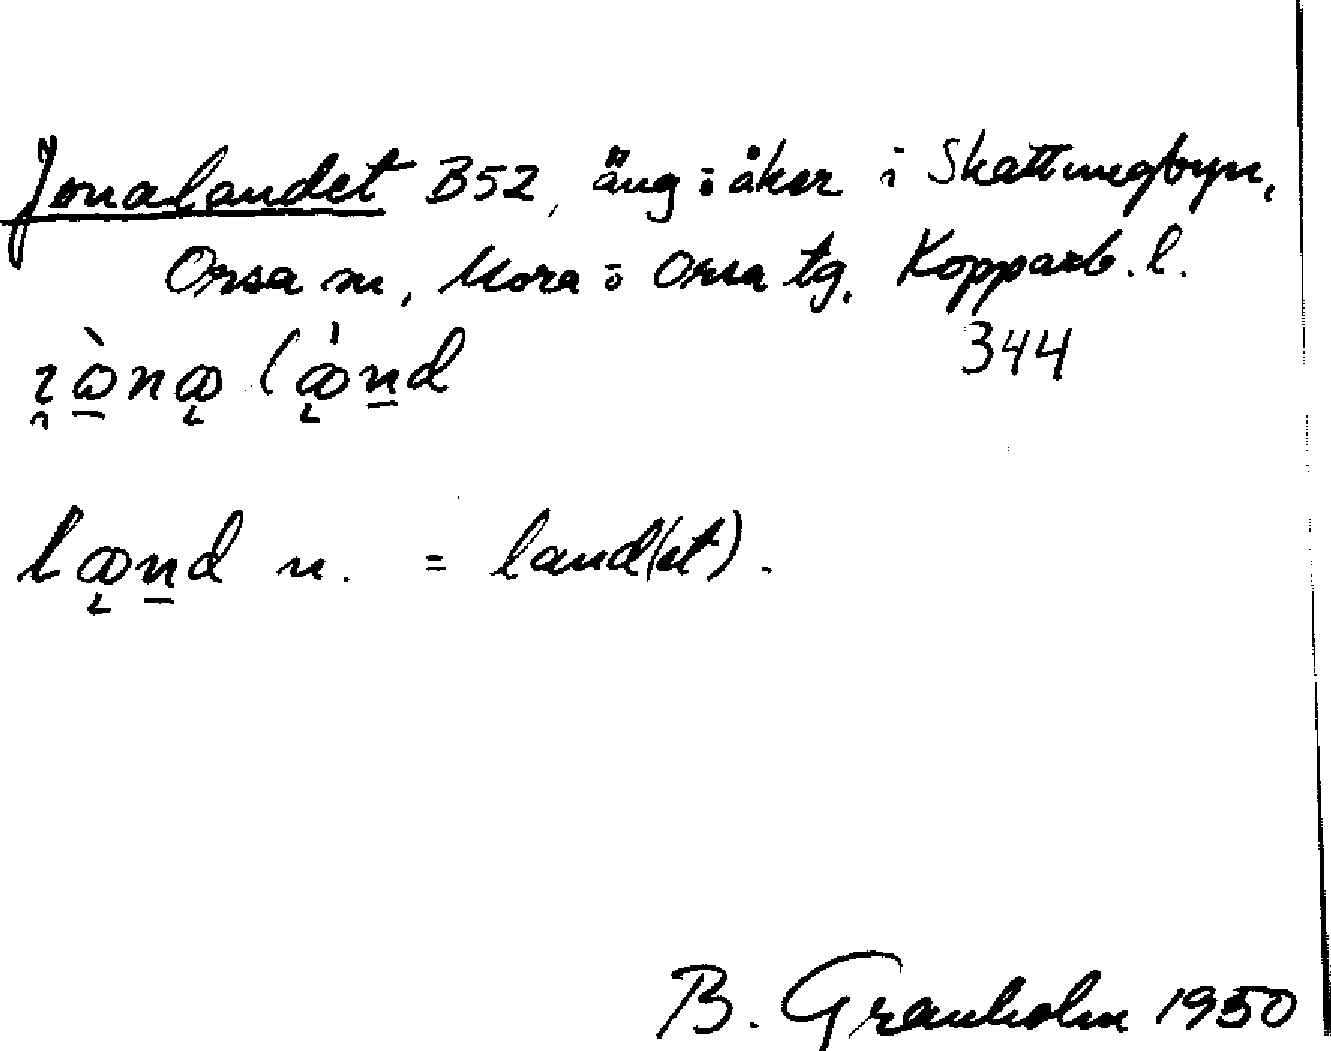 Jonalandet B52, äng o åker i Skattungbyn,
Orsa sn, Mora o Orsa tg. Kopparb. l.
344
n. = land(et).
B. Granholm 1950